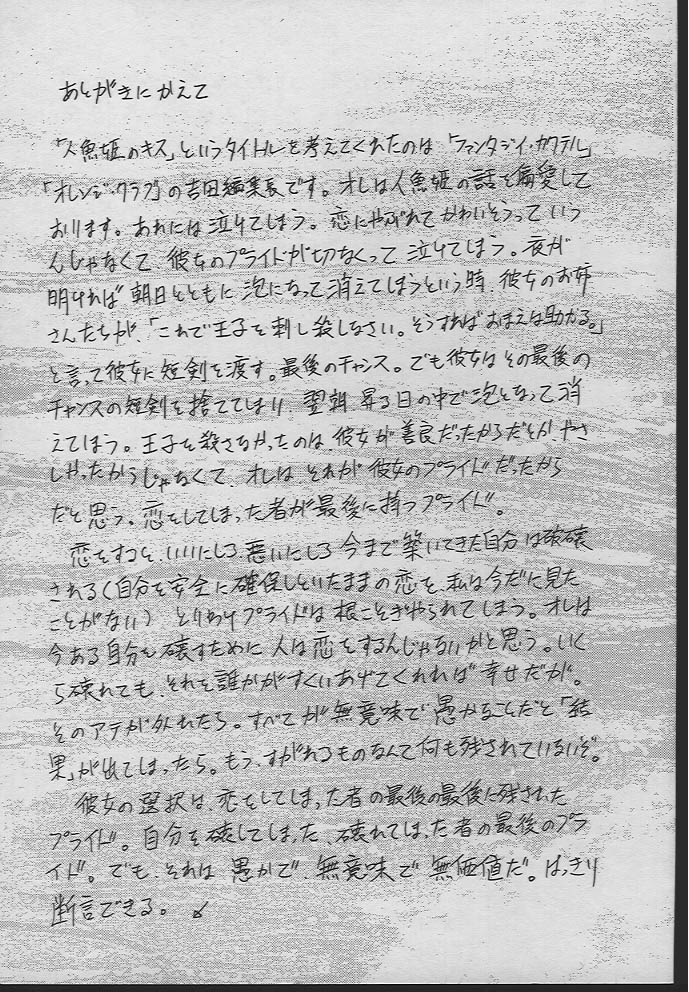 あとがきにかえて
「人魚姫のキス」というタイトルを考えてくれたのは「ファンタジィ・カクテル」
「オレンジ・クラブ」の吉田編集長です。オレは人魚姫の話を偏愛して
おります。あれには泣けてしまう。恋にやぶれてかわいそうってい
んじゃなくて、彼女のプライドが切なくって泣けてしまう。夜が
明ければ朝日とともに泡になって消えてしまうという時、彼女のお姉
さんたちが、「これで王子を刺し殺しなさい。そうすればおまえは助かる。」
と言って彼女に短剣を渡す。最後のチャンス。でも彼女はその最後の
チャンスの短剣を捨ててしまい、翌朝、昇る日の中で泡となって消
えてしまう。王子を殺さなかったのは、彼女が善良だったからだとか、やさ
しかったからじゃなくて、オレは、それが彼女のプライドだったから
だと思う。恋をしてしまった者が最後に持つプライド。
恋をすると、いいにしろ悪いにしろ今まで築いてきた自分は破壊
される(自分を安全に確保しといたままの恋を、私は今だに見た
ことがない)とりわけプライドは根こそぎやられてしまう。オレは
今ある自分を壊すために人は恋をするんじゃないかと思う。いく
ら壊れても、それを誰かがすくいあげてくれれば幸せだが。
そのアテが外れたら。すべてが無意味で愚かなことだと「結
果」が出てしまったら。もう、すがれるものなんて何も残されていないぞ。
彼女の選択は、恋をしてしまった者の最後の最後に残された
プライド。自分を壊してしまった、壊れてしまった者の最後のプラ
イド。でも、それは愚かで、無意味で無価値だ。はっきり
断言できる。